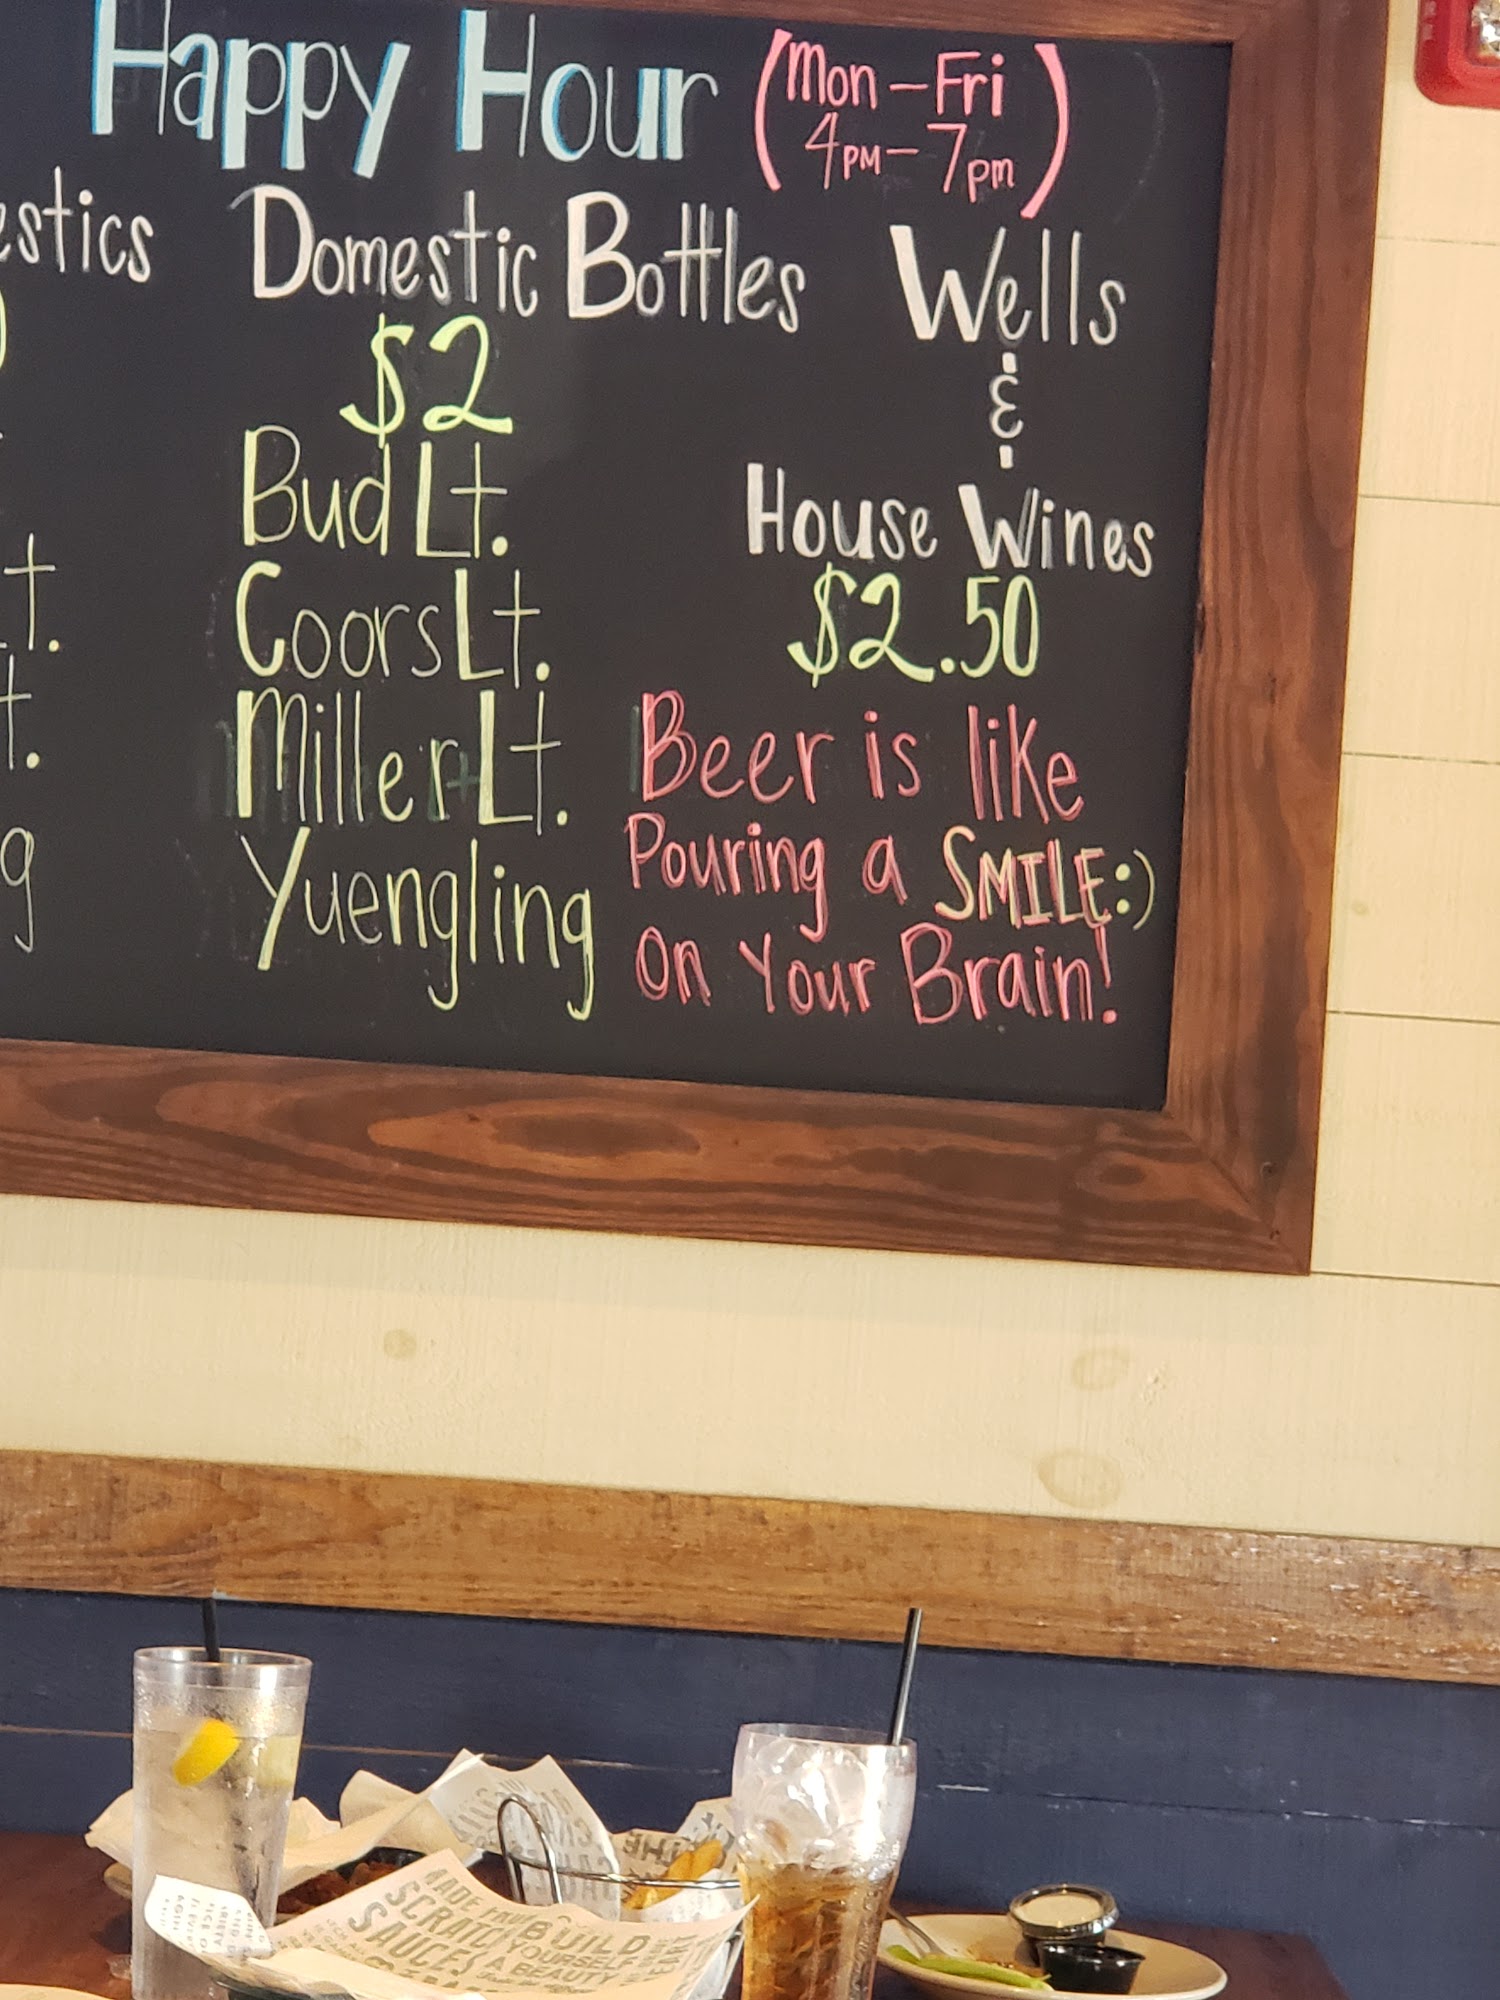 Happy Hour (Mon-Fri
4PM-7pm)
Domestic Bottles
$2
Bud Lt.
Coors Lt.
Miller Lt.
Yuengling
Wells
&
House Wines
$2.50
Beer is like
Pouring a SMILE:)
on Your Brain!
MADE FROM
SCRATCH
SAUCES
BUILD
YOURSELF
A BEAUTY